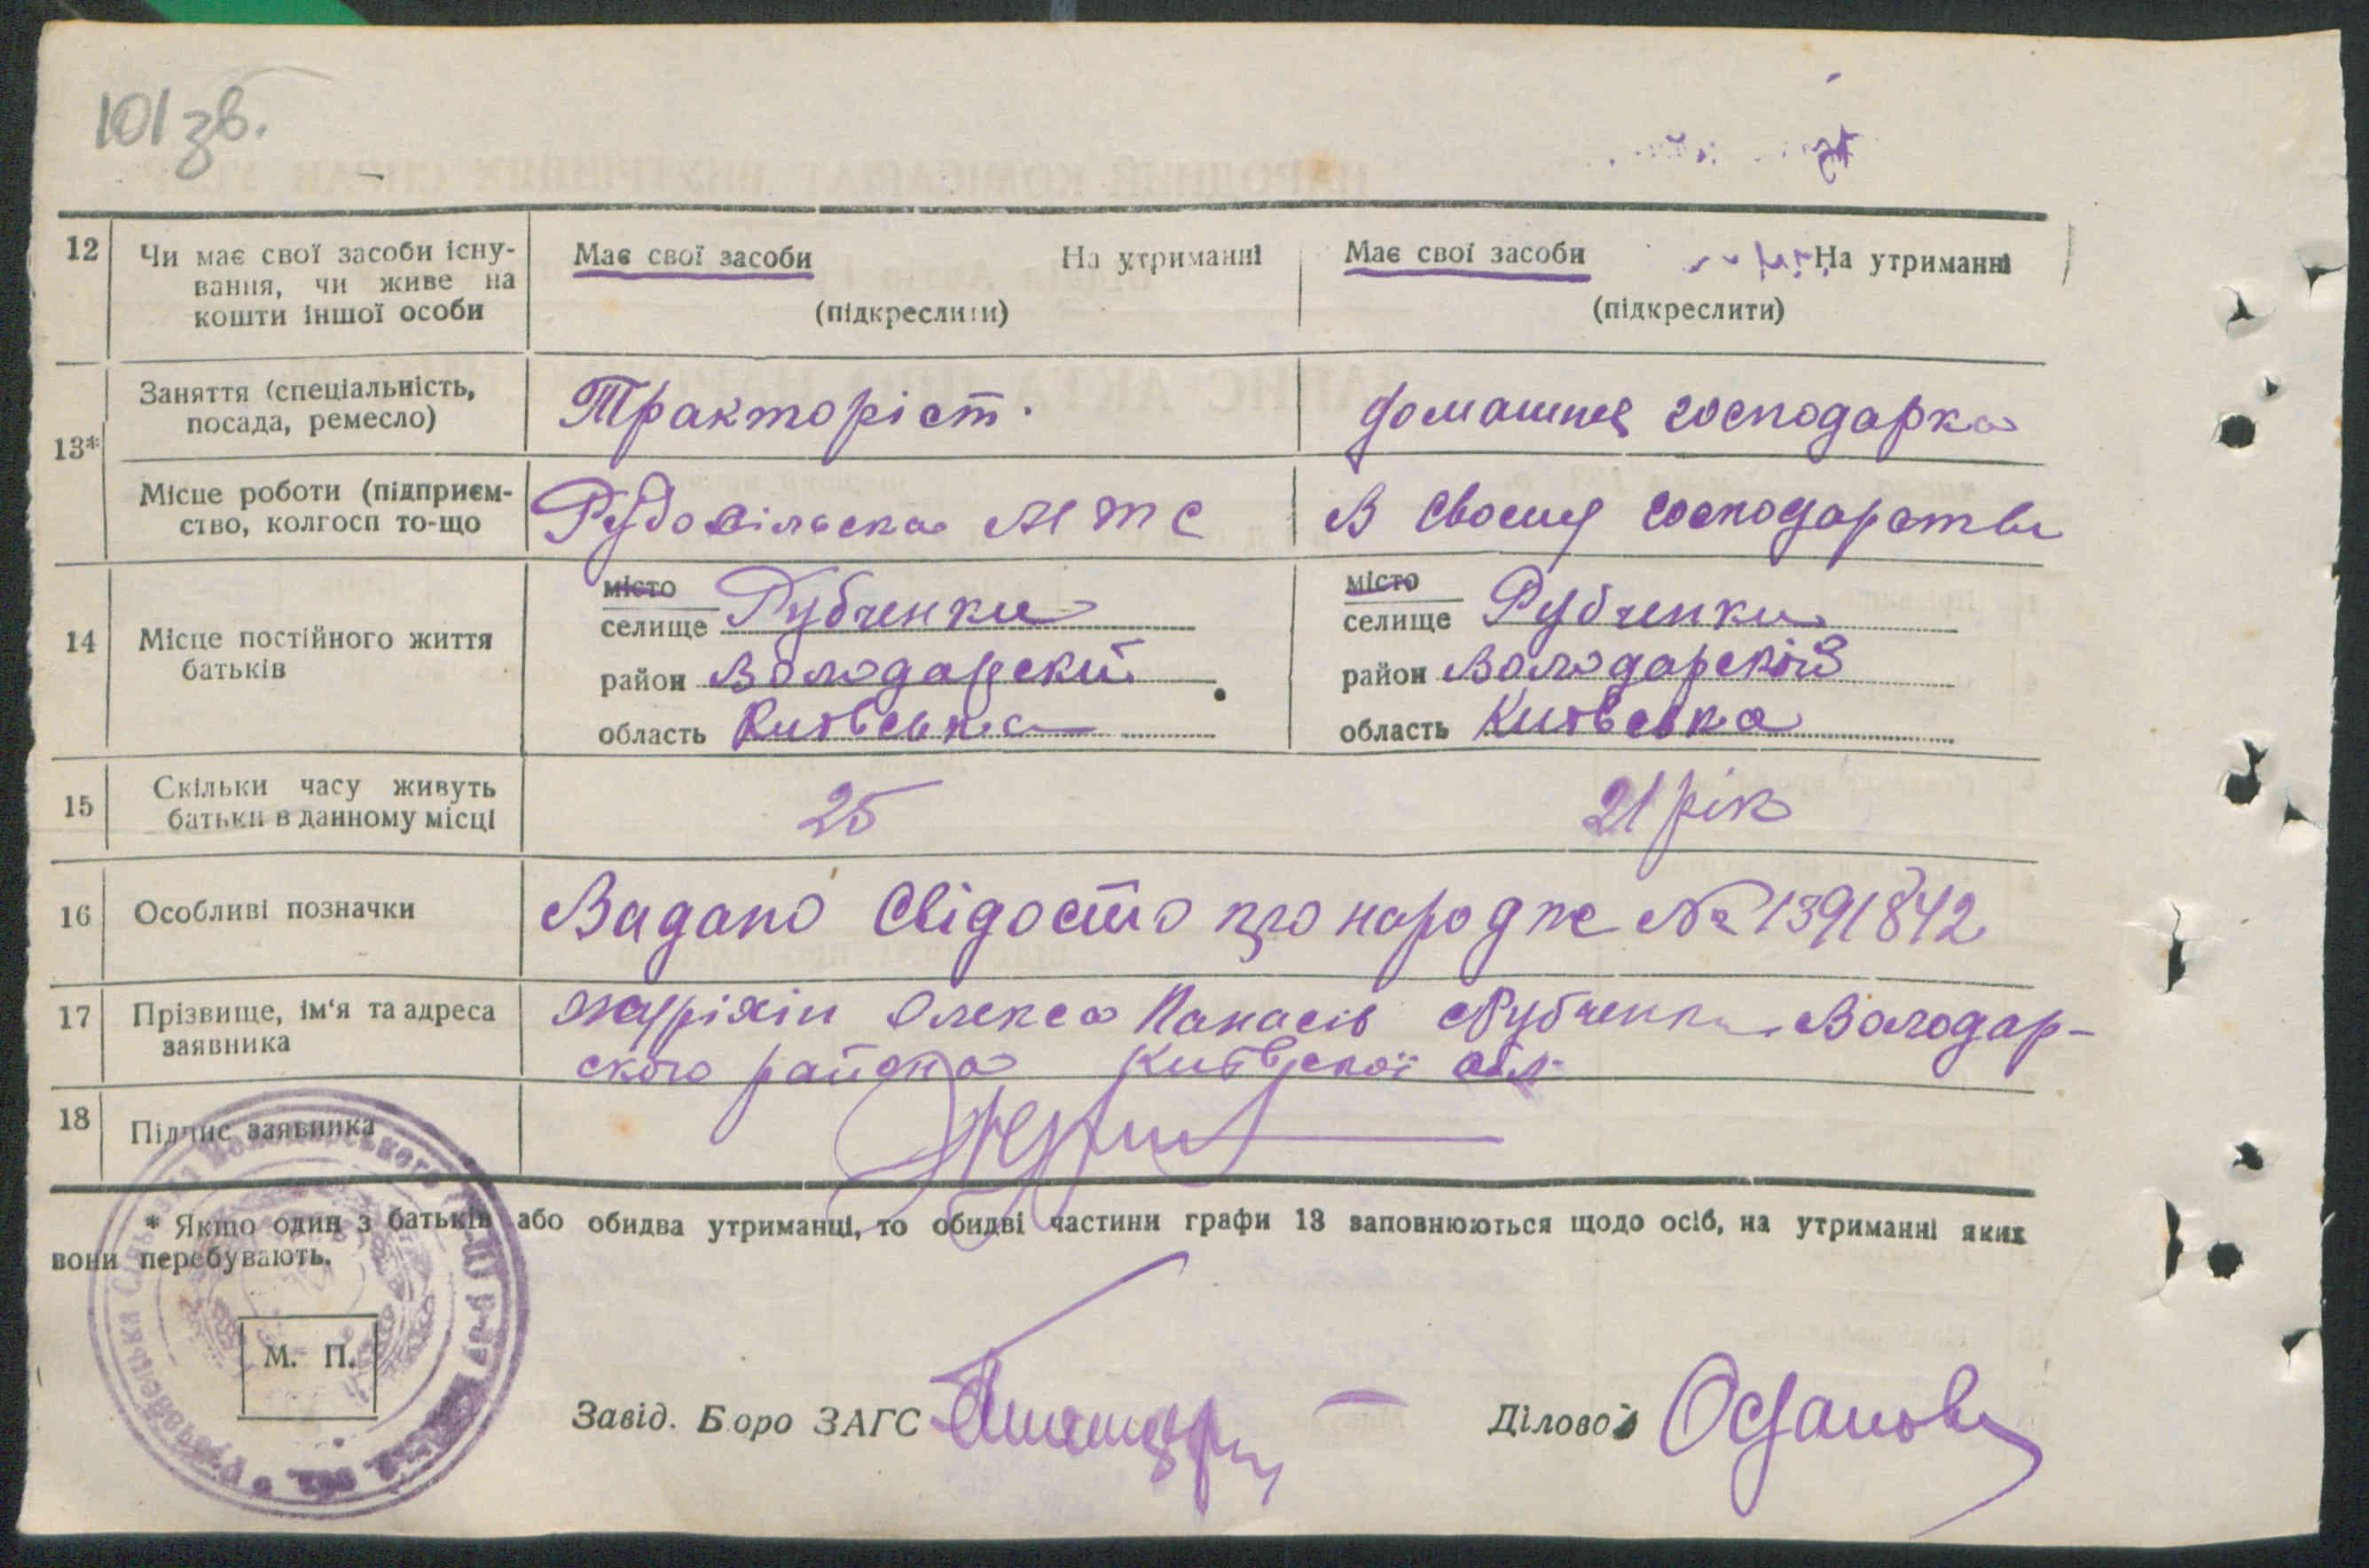 101 зв.
12 Чи має свої засоби існу- Має свої засоби На утриманні Має свої засоби На утриманні
вання, чи живе на
кошти іншої особи (підкреслити) (підкреслити)
Заняття (спеціальність,
посада, ремесло) Тракторіст. домашня господарка
13*
Місце роботи (підприєм-
ство, колгосп то-що МТС В своему господарстви
місто місто
селище Рубченки селище Рубченки
14 Місце постійного життя
батьків район Володарский район Володарской
область Київська область Київська
15 Скільки часу живуть
батьки в данному місці 25 21 рік
16 Особливі позначки Видано Свідоство про народже № 1391842
17 Прізвище, ім'я та адреса
заявника Олекса Панасів Рубченки Володар-
ского района Київскої обл.
18 Підпис заявника
* Якщо один з батьків або обидва утриманці, то обидві частини графи 13 заповнюються щодо осіб, на утриманні яких
вони перебувають.
М. П.
Завід. Бюро ЗАГС Діловод